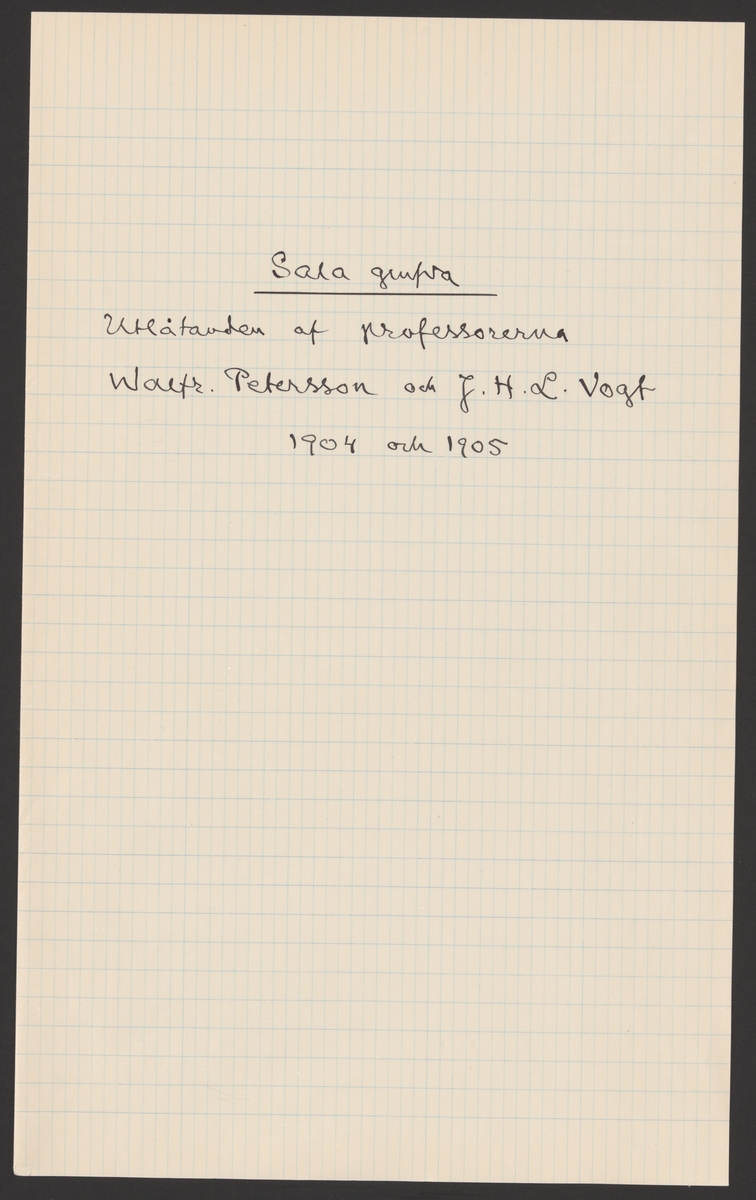 Sala grufva
Utlåtanden af professorerna
Walfr. Petersson och J. H. L. Vogt
1904 och 1905